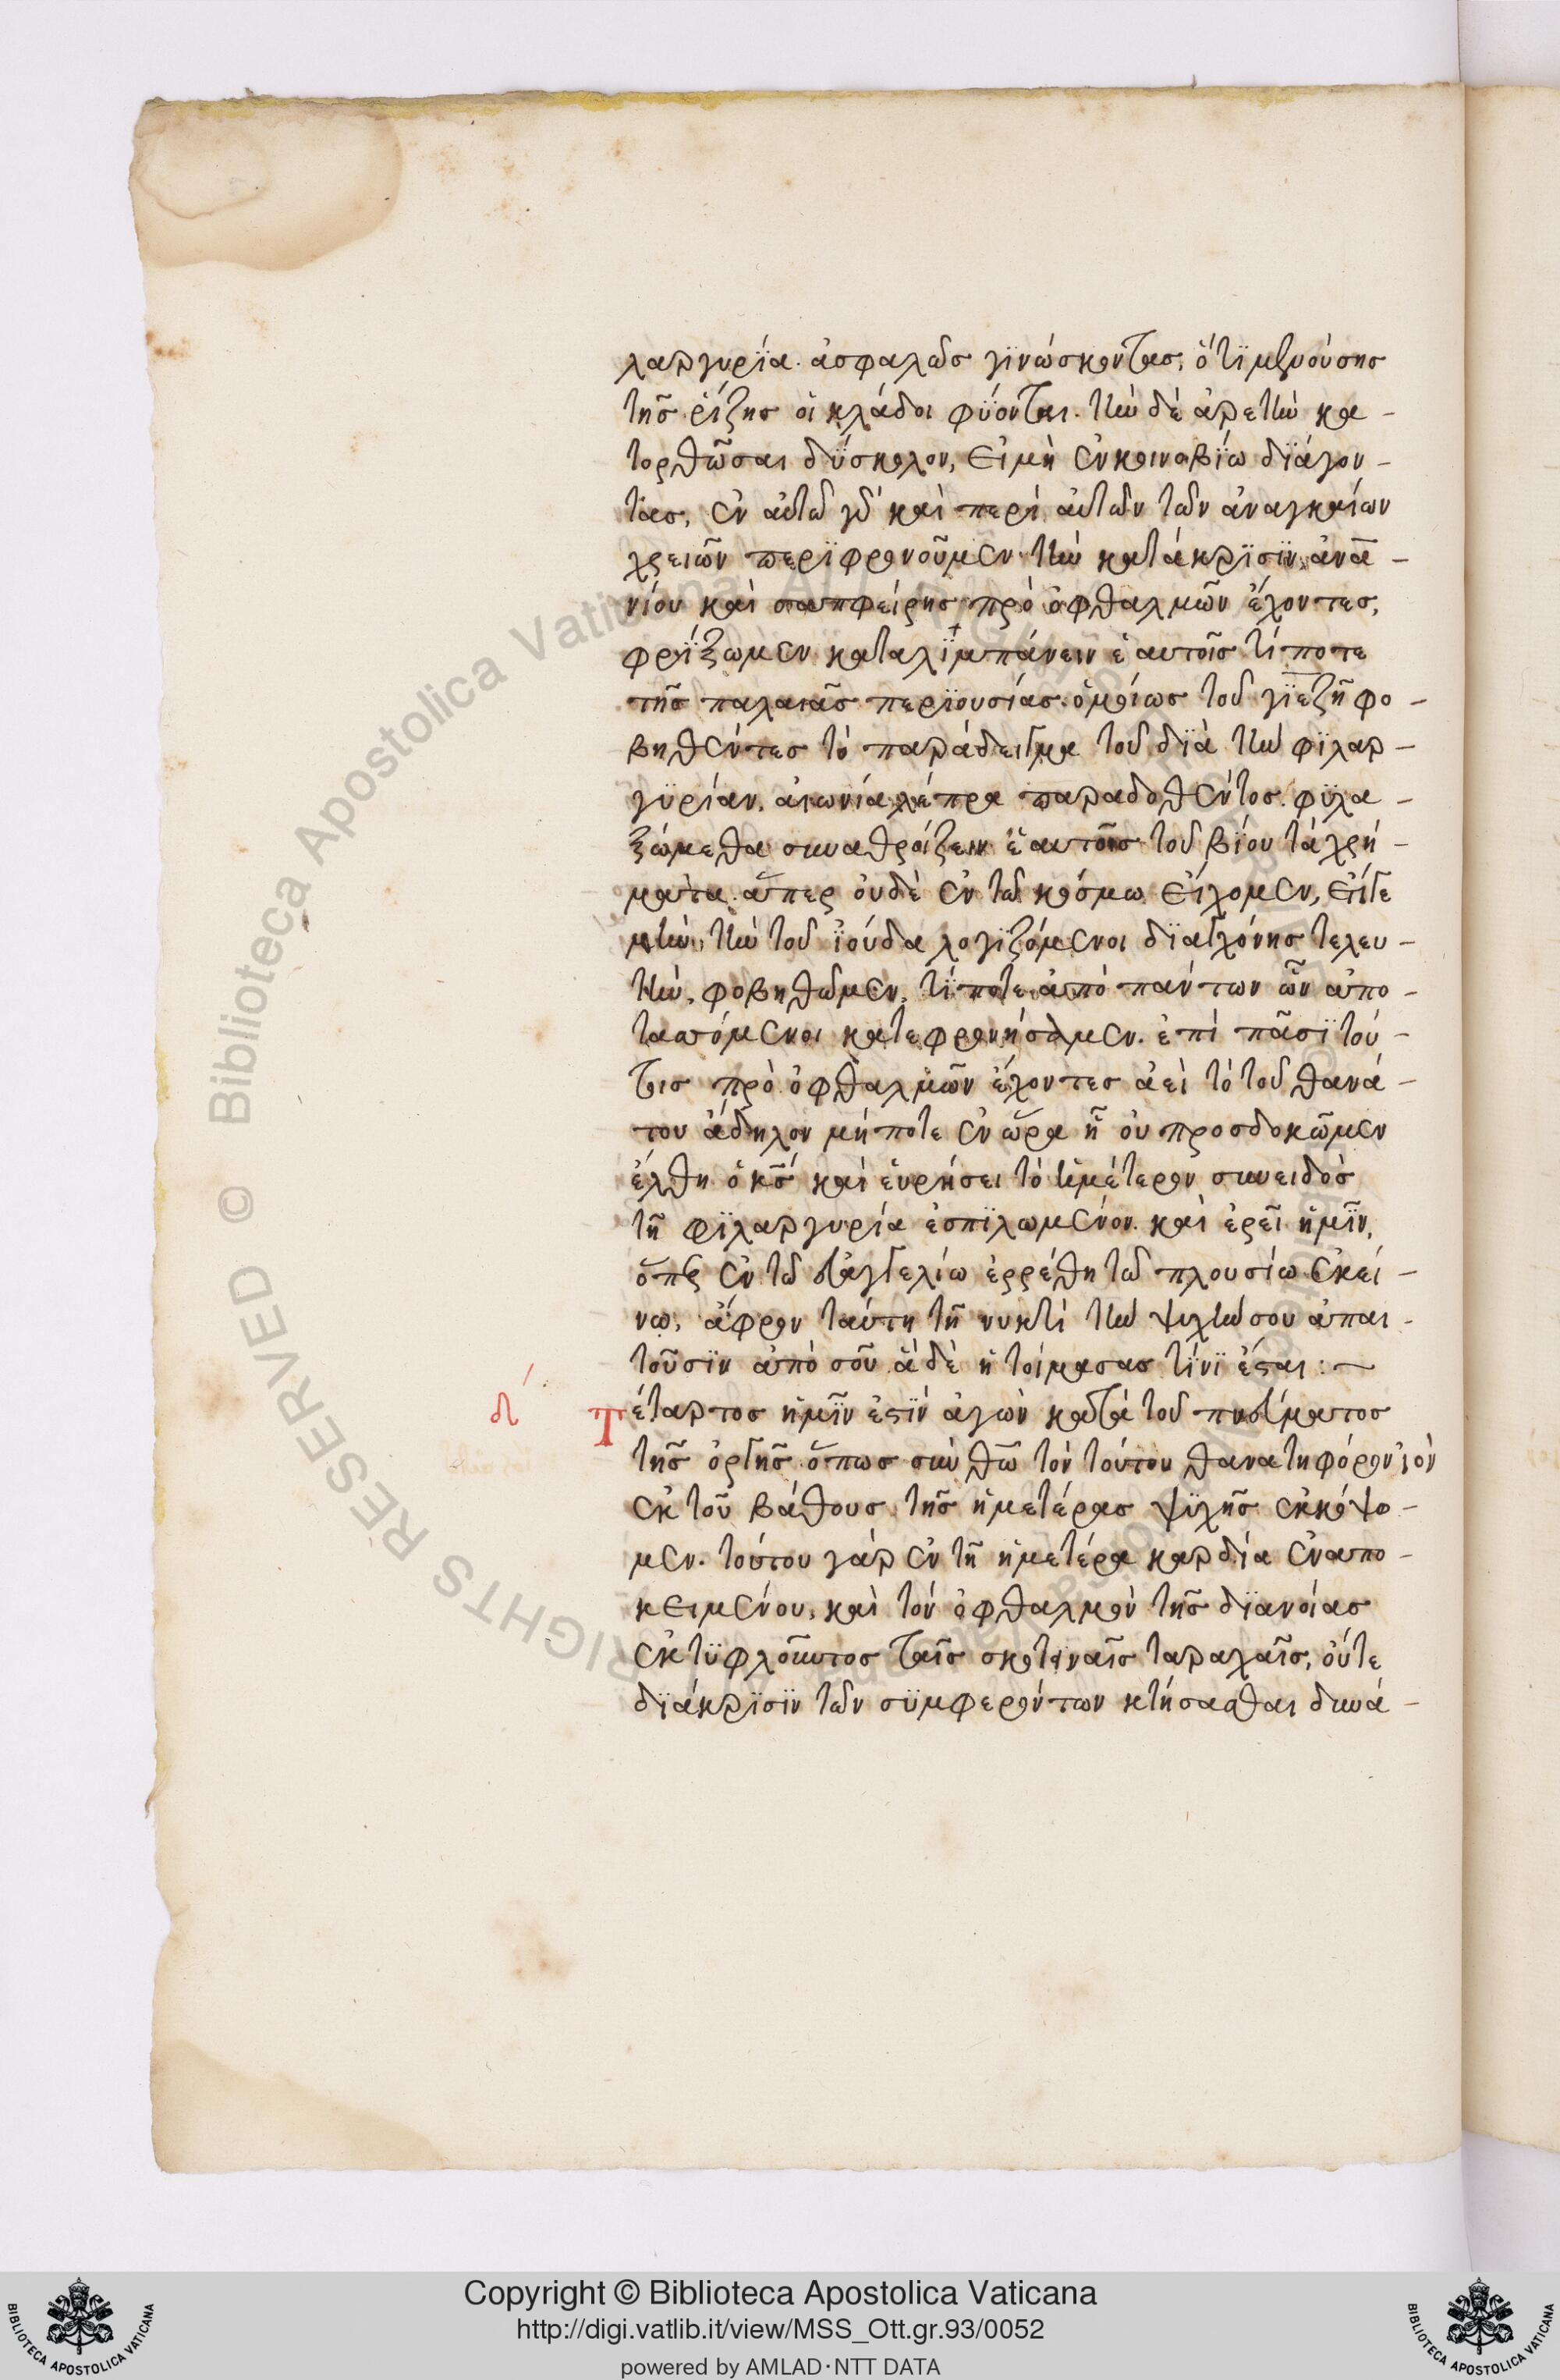 λαργυρία. ἀσφαλῶς γϊνώσκοντας, ὅτϊ μενούσης
τῆς ῥίζης οἱ κλάδοι φύονται. τὴν δὲ ἀρετὴν κα -
τορθῶσαι δύσκολον, εἰμὴ ἐν κοινοβίω διάγον -
τας, ἐν αὐτῶ γὰρ καὶ περὶ αὐτῶν τῶν ἀναγκαίων
χρειῶν περϊφρονοῦμεν. τὴν κατάκρϊσϊν ἀνα -
νίου καὶ σαπφείρης πρὸ ὀφθαλμῶν ἔχοντες,
φρίξωμεν καταλϊμπάνειν ἑαυτοῖς τί ποτε
τῆς παλαιᾶς περϊουσίας. ὁμοίως τοῦ γϊεζῆ φο -
βηθέντες τὸ παράδειγμα τοῦ δϊὰ τὴν φϊλαρ -
γϋρίαν, αἰωνία λέπρα παραδοθέντος. φϋλα -
ξώμεθα συναθροίζειν ἑαυτοῖς τοῦ βίου τὰ χρή -
ματα. ἅπερ οὐδὲ ἐν τῶ κόσμω εἴχομεν, εἴτε
μὴν, τὴν τοῦ ἰούδα λογϊζόμενοι δϊ' ἀγχόνης τελευ -
τὴν, φοβηθῶμεν, τί ποτε ἀπὸ πάντων ὧν ἀπο -
ταττόμενοι κατεφρονήσαμεν. ἐπὶ πᾶσϊ τού -
τοις πρὸ ὀφθαλμῶν ἔχοντες ἀεὶ τὸ τοῦ θανά -
του ἄδηλον μήποτε ἐν ὥρα ἧ οὐ προσδοκῶμεν
ἔλθη ὁ κς καὶ εὑρήσει τὸ ἡμέτερον συνειδὸς
τῆ φϊλαργυρία ἐσπϊλωμένον. καὶ ἐρεῖ ἡμῖν,
ὅπερ ἐν τῶ εὐαγγελίω ἐρρέθη τῶ πλουσίω ἐκεί -
νω, ἄφρον ταύτη τῆ νυκτὶ τὴν ψυχὴν σου ἀπαι -
τοῦσϊν ἀπὸ σοῦ. ἃ δὲ ἡτοίμασας τίνϊ ἔσται : ~
δ´ Τέταρτος ἡμῖν ἐστὶν ἀγὼν κατὰ τοῦ πνεύματος
τῆς ὀργῆς. ὅπως σὺν θῶ τὸν τούτου θανατηφόρον ἰὸν
ἐκ τοῦ βάθους τῆς ἡμετέρας ψϋχῆς ἐκκόψο -
μεν. τούτου γὰρ ἐν τῆ ἡμετέρα καρδία ἐναπο -
κειμένου, καὶ τὸν ὀφθαλμὸν τῆς δϊανοίας
ἐκτϋφλοῦντος ταῖς σκοτειναῖς ταραχαῖς, οὔτε
δϊάκρϊσϊν τῶν σϋμφερόντων κτήσασθαι δυνά -
© Biblioteca Apostolica Vaticana ALL RIGHTS RESERVED
Copyright © Biblioteca Apostolica Vaticana
http://digi.vatlib.it/view/MSS_Ott.gr.93/0052
powered by AMLAD·NTT DATA
BIBLIOTECA APOSTOLICA VATICANA
BIBLIOTECA APOSTOLICA VATICANA